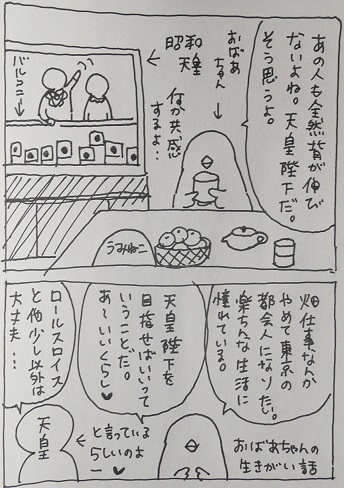 あの人も全然背が伸び
ないよね。天皇陛下だ。
そう思うよ。
おばあ
ちゃん
昭和
天皇
何か共感
するよ…
バルコニー
うみねこ
畑仕事なんか
やめて東京の
都会人になりたい。
楽ちんな生活に
憧れている。
天皇陛下を
目指せばいいって
いうことだ。
あ〜いいくらし♥
ロールスロイス
と他少し以外は
大丈夫…
おばあちゃんの
生きがい話
と言っている
らしいのよ
ー♥
天皇